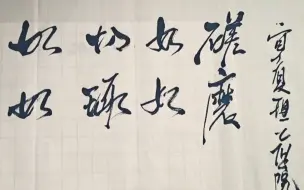 如切如磋
如琢如磨